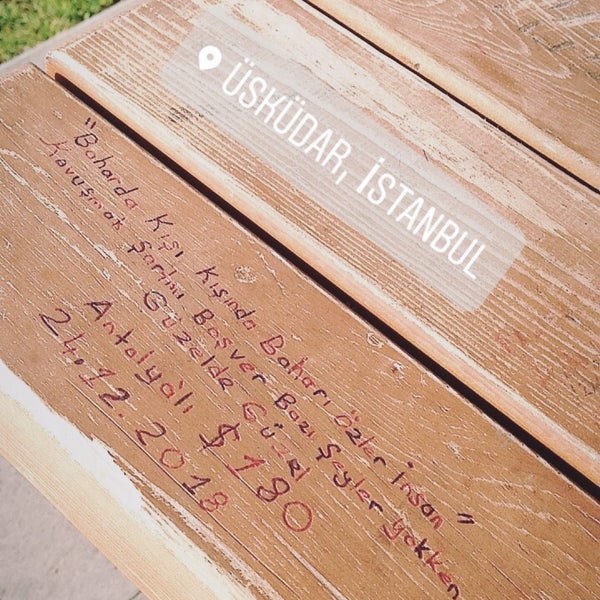 ÜSKÜDAR, İSTANBUL
"Baharda Kışı Kışında Baharı Özler İnsan"
Kavuşmak Şartmı Boşver Bazı Şeyler yokken
Güzelde Güzel
Antalyalı $ 180
24.12.2018